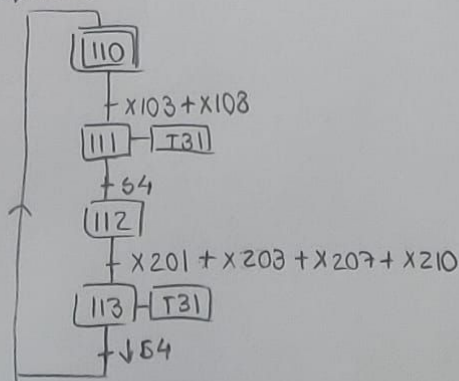 110
X103+X108
111 T31
S4
112
X201 + X203 + X207 + X210
113 T31
↓S4